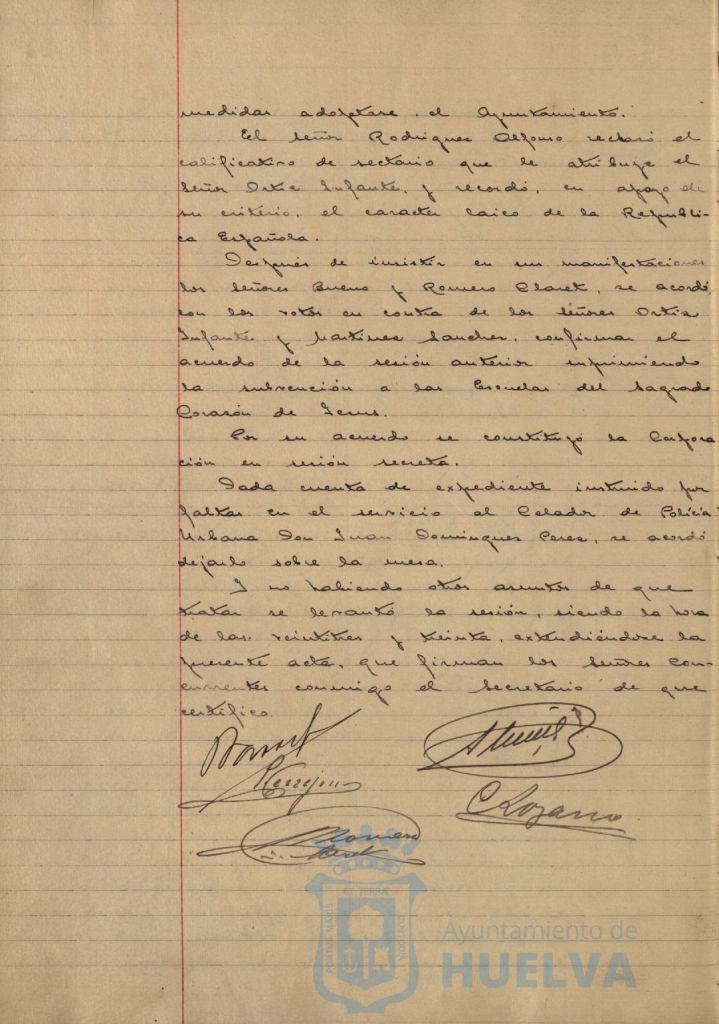 medidas adoptare el Ayuntamiento.
El señor Rodriguez Alfonso rechazó el
calificativo de sectario que le atribuye el
Señor Ortiz Infante, y recordó, en apoyo de
su criterio, el caracter laico de la Republi-
ca Española.
Después de insistir en sus manifestaciones
los señores Bueno y Romero Claret, se acordó,
con los votos en contra de los señores Ortiz
Infante y Martinez Sanchez, confirmar el
acuerdo de la sesión anterior suprimiendo
la subvención a las Escuelas del Sagrado
Corazón de Jesus.
Por su acuerdo se constituyó la Corpora
ción en sesión secreta.
Dada cuenta de expediente instruido por
faltas en el servicio al Celador de Policia
Urbana Don Juan Dominguez Perez, se acordó
dejarlo sobre la mesa.
Y no habiendo otros asuntos de que
tratar se levantó la sesión, siendo la hora
de las veintitres y treinta, extendiéndose la
presente acta, que firman los señores con-
currentes conmigo el Secretario de que
certifico.
C Lozano
Romero
Claret
ET TERRÆ
PORTUS MARIS
CUSTODIA
Ayuntamiento de
HUELVA